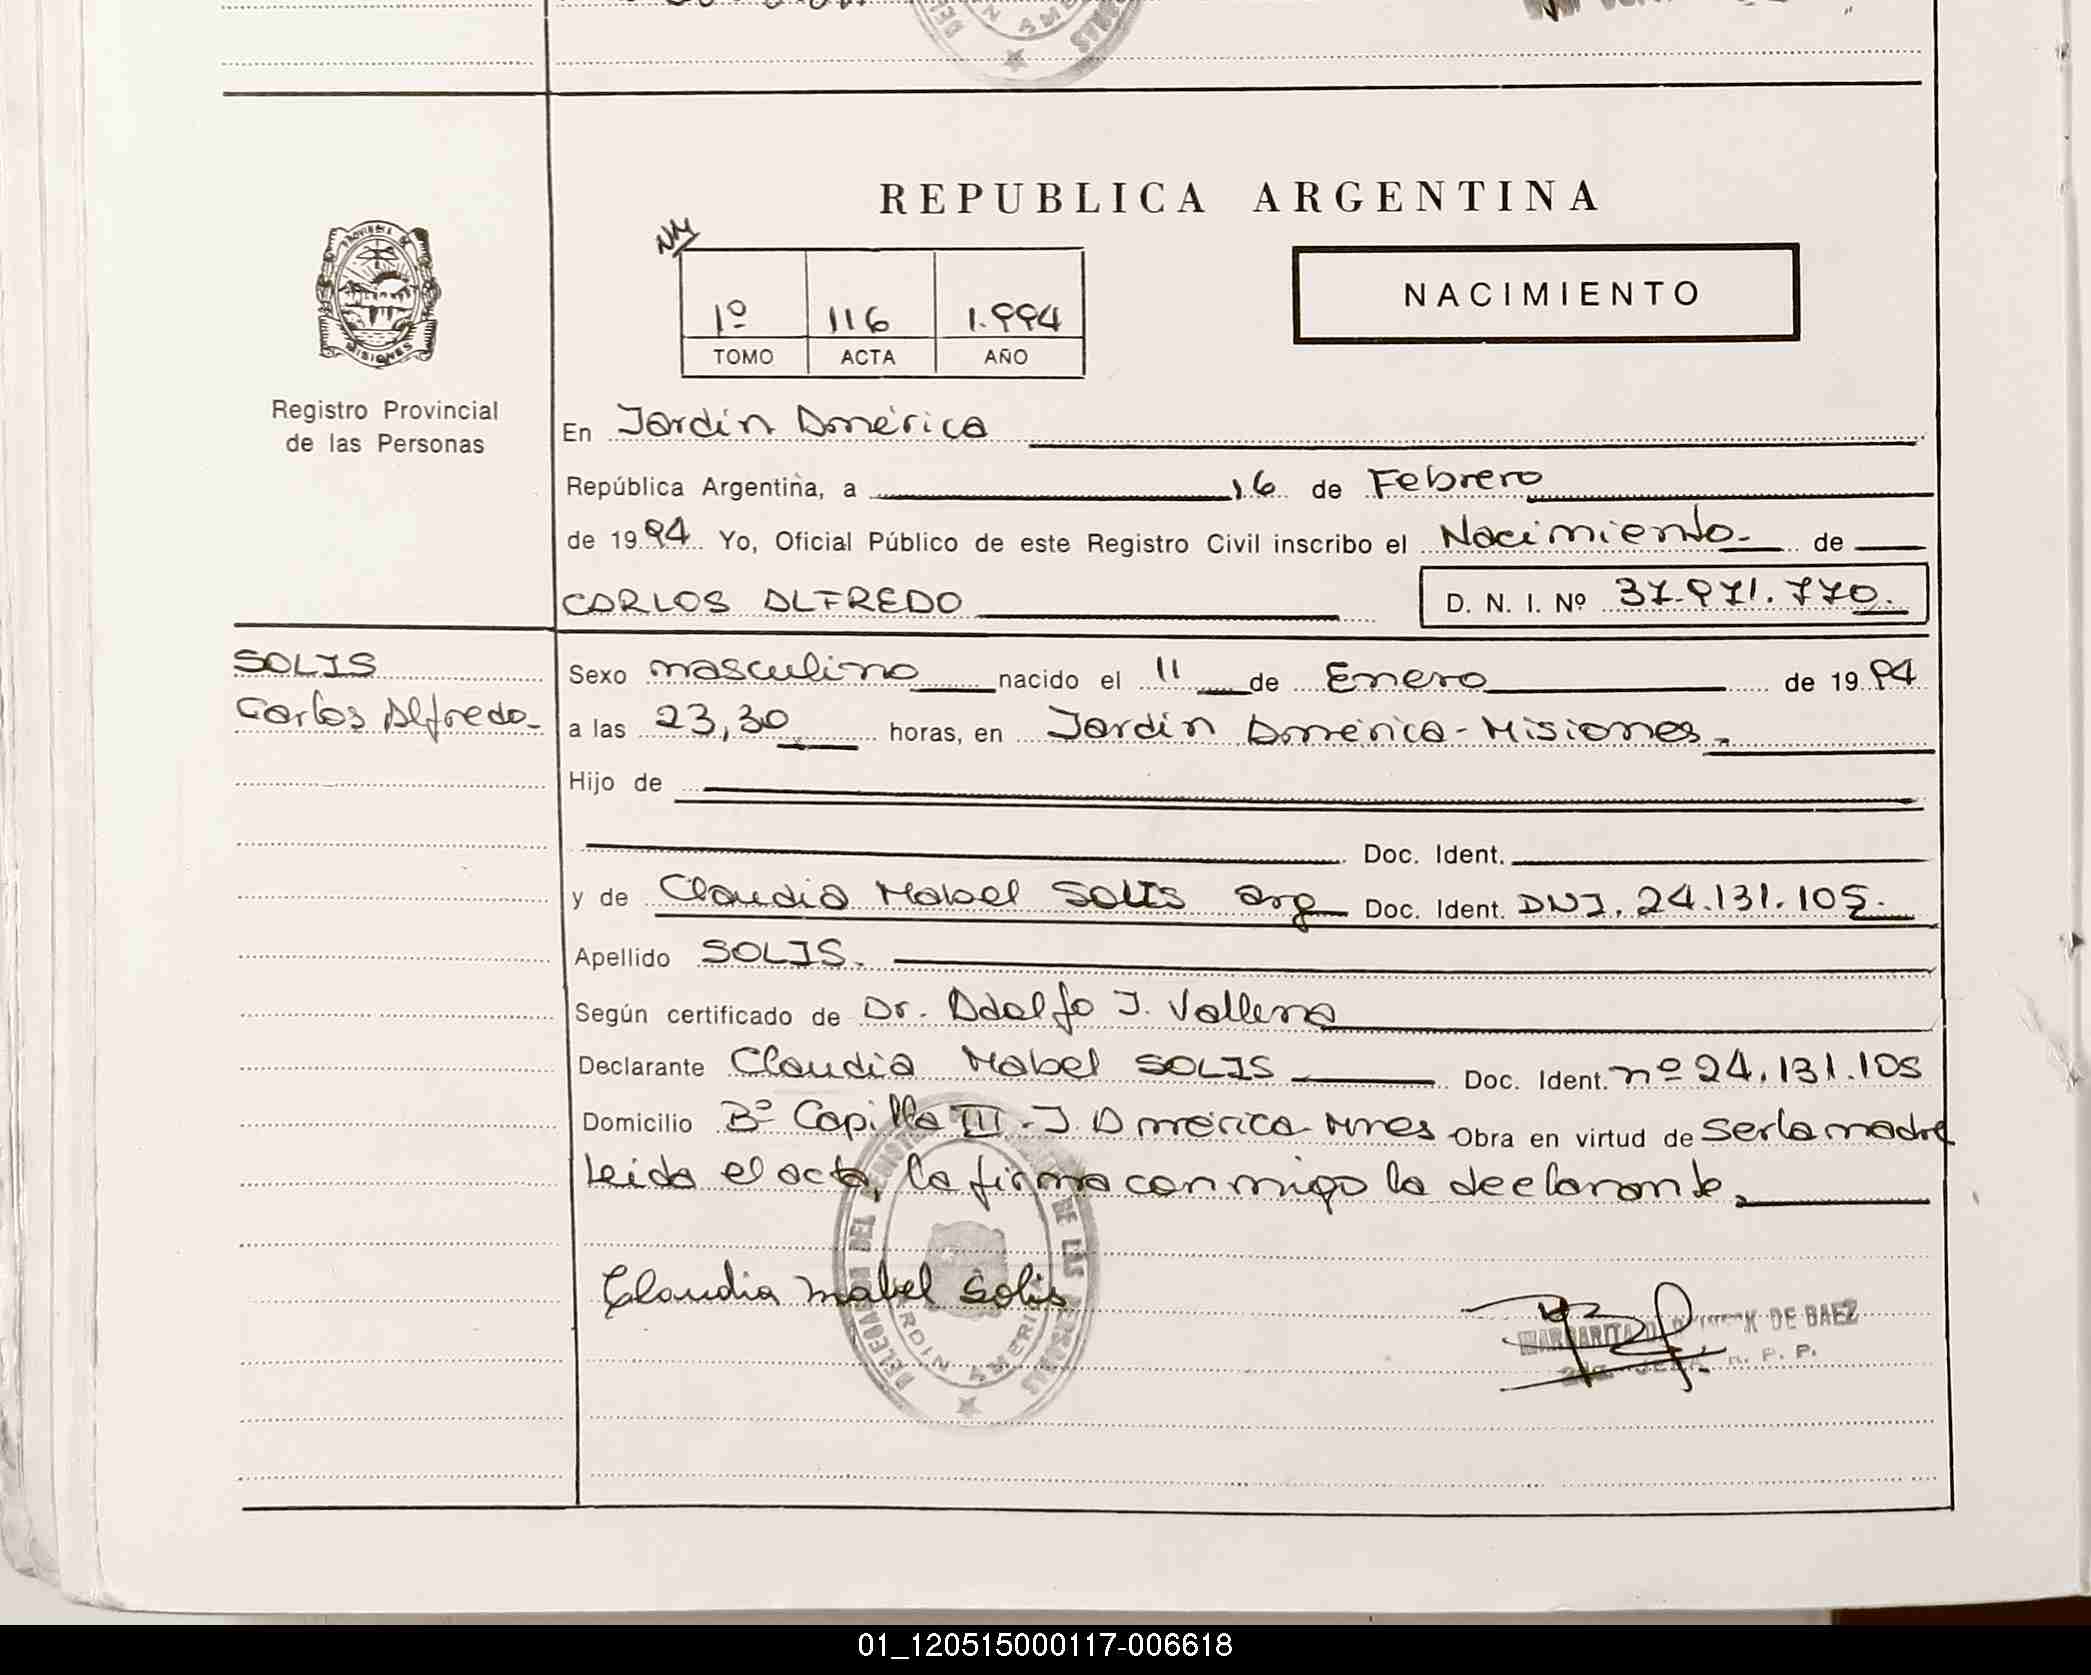 REPUBLICA ARGENTINA
NM
1º 116 1.994
TOMO ACTA AÑO
NACIMIENTO
PROVINCIA DE
MISIONES
Registro Provincial
de las Personas
En Jardín América
República Argentina, a 16 de Febrero
de 1994 Yo, Oficial Público de este Registro Civil inscribo el Nacimiento de
CARLOS ALFREDO D. N. I. Nº 37.971.770.
SOLIS
Carlos Alfredo
Sexo masculino nacido el 11 de Enero de 1994
a las 23,30 horas, en Jardín América - Misiones.
Hijo de
Doc. Ident.
y de Claudia Mabel SOLIS arg Doc. Ident. DNI. 24.131.105.
Apellido SOLIS.
Según certificado de Dr. Adolfo J.
Declarante Claudia Mabel SOLIS Doc. Ident. nº 24.131.105
Domicilio Bº Capilla III - J. América - Mnes Obra en virtud de ser la madre
Leida el acta, la firma conmigo la declarante.
Claudia Mabel Solis
DELEGACION DEL REGISTRO DE LAS PERSONAS
JARDIN AMERICA
MARGARITA DE BAEZ
2da JEFA R. P. P.
01_120515000117-006618